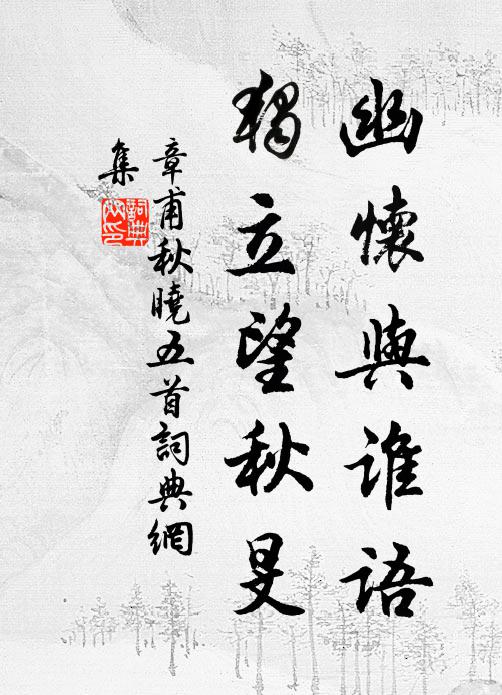 幽懷與誰語
獨立望秋旻
章甫秋曉五首詞典網
集
詞典網印